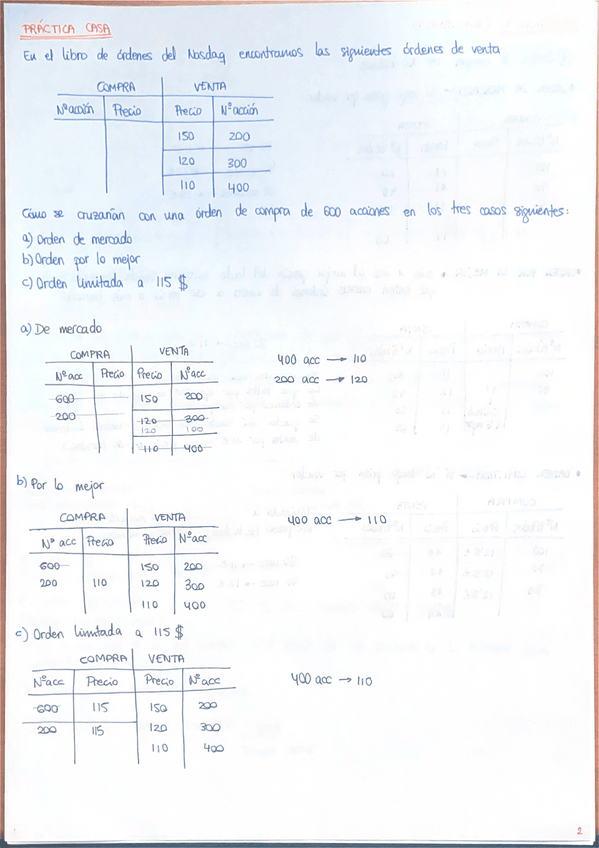 PRÁCTICA CASA
En el libro de órdenes del Nasdaq encontramos las siguientes órdenes de venta
COMPRA VENTA
Nº acción Precio Precio Nº acción
150 200
120 300
110 400
Cómo se cruzarían con una órden de compra de 600 acciones en los tres casos siguientes:
a) Orden de mercado
b) Orden por lo mejor
c) Orden limitada a 115 $
a) De mercado
COMPRA VENTA
Nº acc Precio Precio Nº acc
600 150 200
200 120 300
120 100
110 400
400 acc → 110
200 acc → 120
b) Por lo mejor
COMPRA VENTA
Nº acc Precio Precio Nº acc
600 150 200
200 110 120 300
110 400
400 acc → 110
c) Orden limitada a 115 $
COMPRA VENTA
Nº acc Precio Precio Nº acc
600 115 150 200
200 115 120 300
110 400
400 acc → 110
2